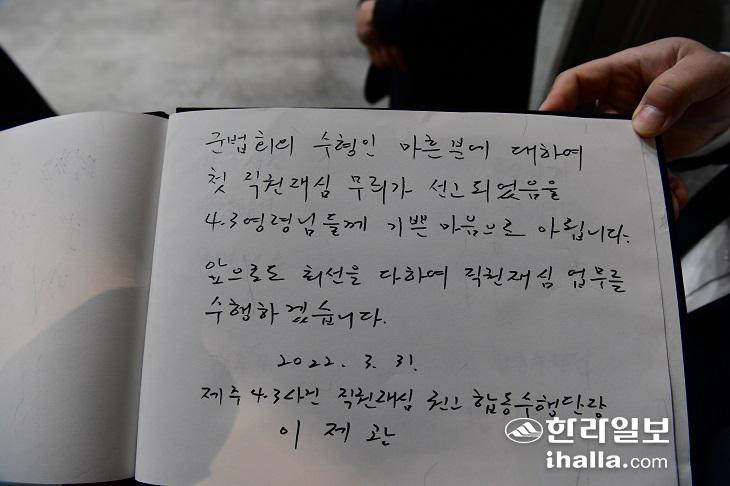 군법회의 수형인 마흔분에 대하여
첫 직권재심 무죄가 선고되었음을
4.3영령님들께 기쁜 마음으로 아룁니다.
앞으로도 최선을 다하여 직권재심 업무를
수행하겠습니다.
2022. 3. 31.
제주4.3사건 직권재심 권고 합동수행단장
이 제 관
한라일보
ihalla.com